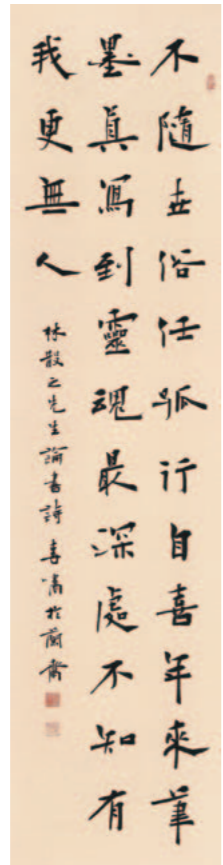 不隨世俗任孤行自喜年來筆
墨真寫到靈魂最深處不知有
我更無人
林散之先生論書詩 於蘭齋